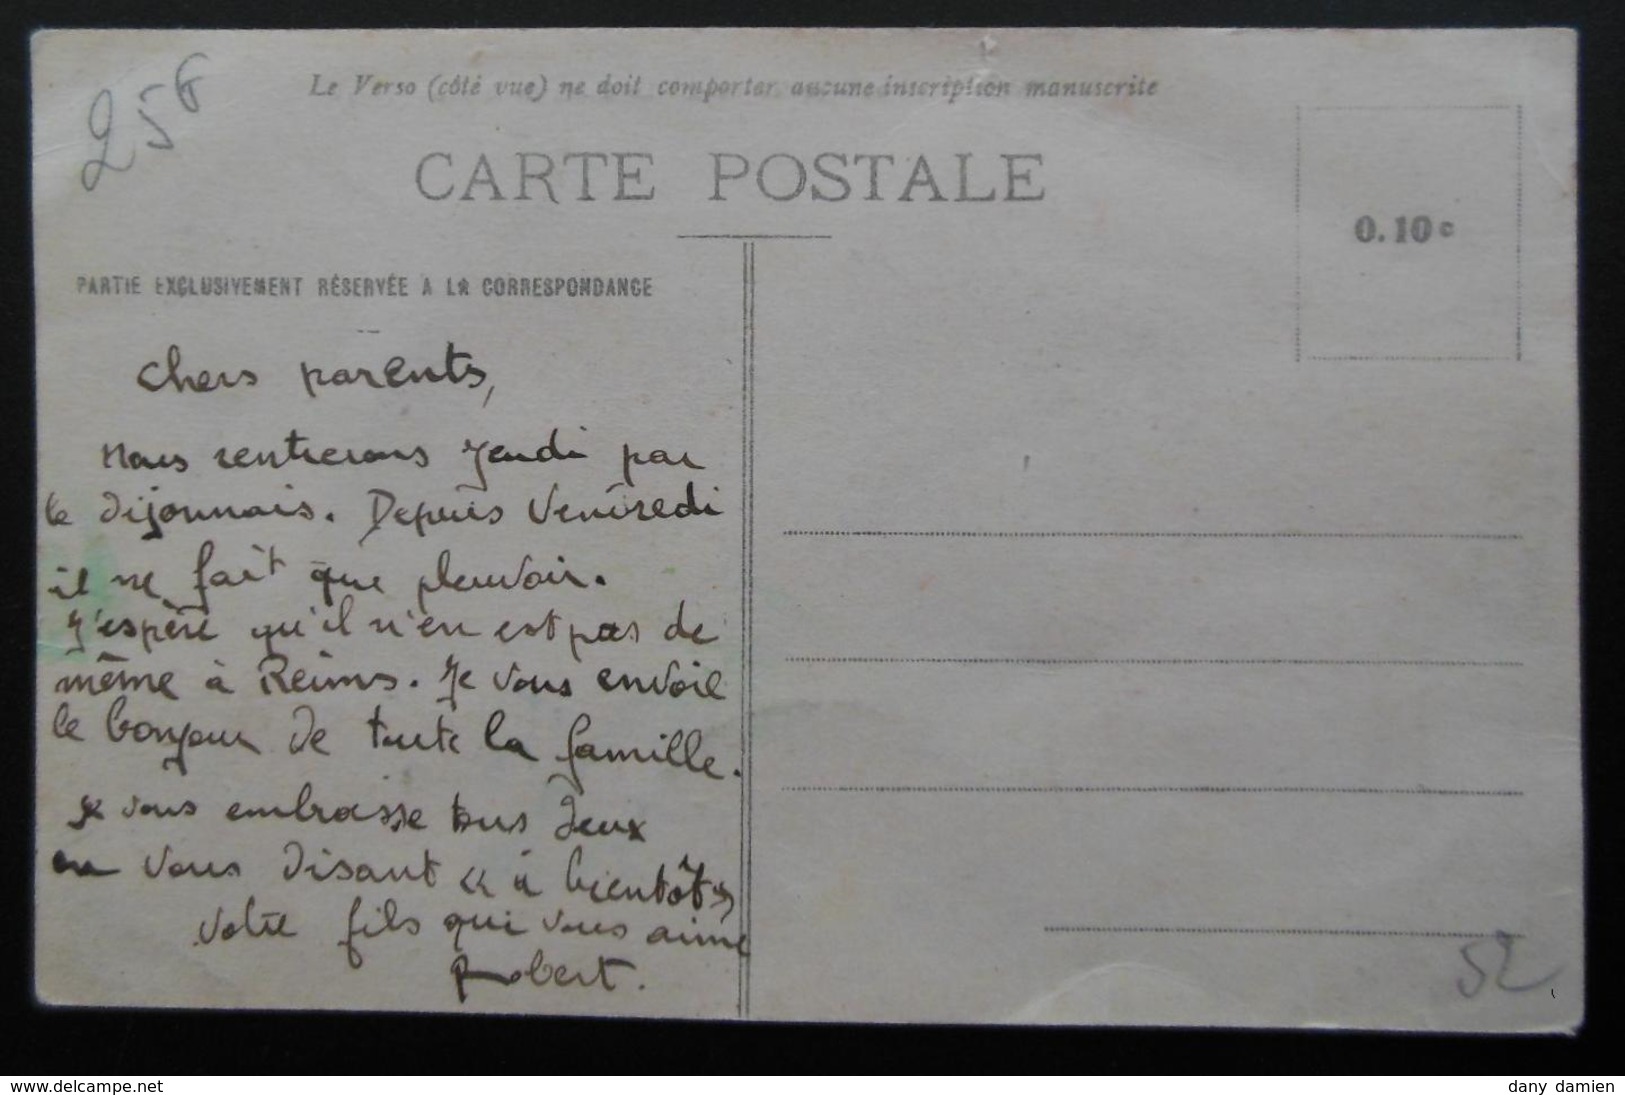 256
Le Verso (côté vue) ne doit comporter aucune inscription manuscrite
CARTE POSTALE
0.10c
PARTIE EXCLUSIVEMENT RÉSERVÉE A LA CORRESPONDANCE
Chers parents,
Nous rentrerons Jeudi par
le dijonnais. Depuis Vendredi
il ne fait que pleuvoir.
J'espère qu'il n'en est pas de
même à Reims. Je vous envoie
le bonjour de toute la famille.
Je vous embrasse tous deux
en vous disant « à bientôt »
Votre fils qui vous aime
Robert.
52
www.delcampe.net
dany damien